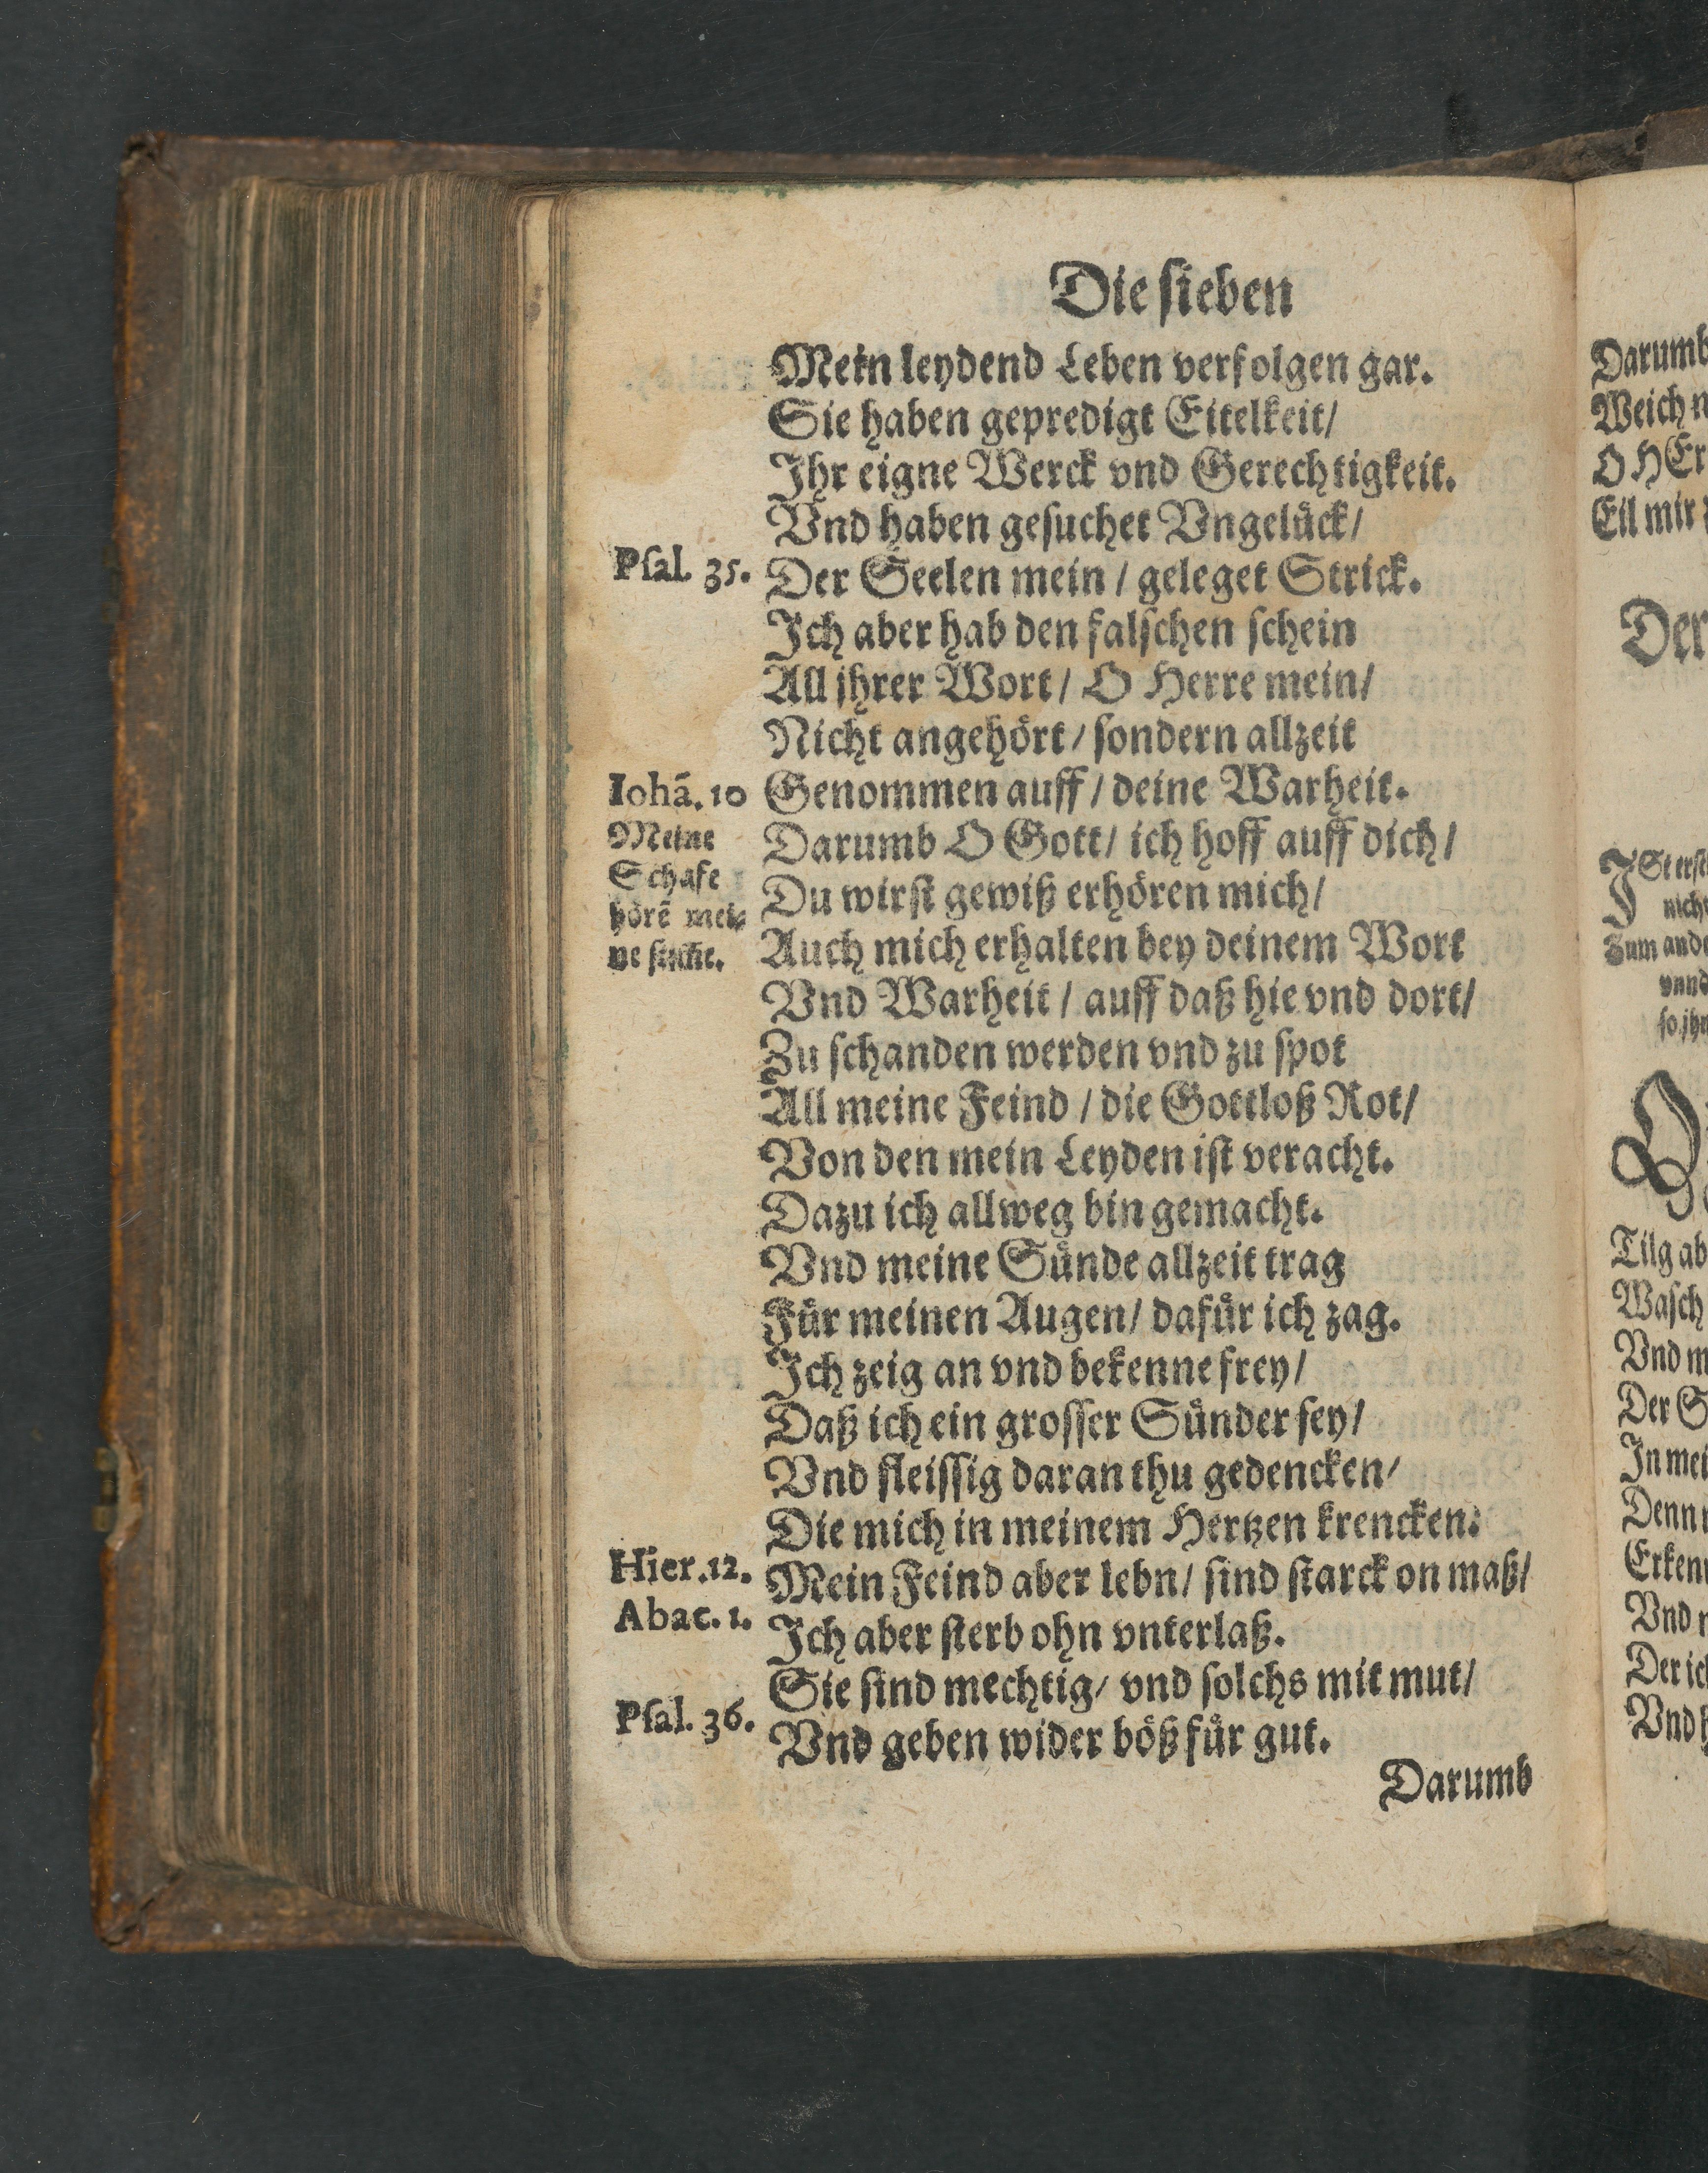 Die sieben
Mein leydend Leben verfolgen gar.
Sie haben gepredigt Eitelkeit/
Ihr eigne Werck vnd Gerechtigkeit.
Vnd haben gesuchet Vngelück/
Psal. 35.
Der Seelen mein / geleget Strick.
Ich aber hab den falschen schein
All jhrer Wort / O Herre mein/
Nicht angehört / sondern allzeit
Iohã. 10
Meine
Schafe
hörẽ mei-
ne stim̃e.
Genommen auff / deine Warheit.
Darumb O Gott / ich hoff auff dich /
Du wirst gewiß erhören mich /
Auch mich erhalten bey deinem Wort
Vnd Warheit / auff daß hie vnd dort/
Zu schanden werden vnd zu spot
All meine Feind / die Gottloß Rot/
Von den mein Leyden ist veracht.
Dazu ich allweg bin gemacht.
Vnd meine Sünde allzeit trag
Für meinen Augen / dafür ich zag.
Ich zeig an vnd bekenne frey /
Daß ich ein grosser Sünder sey /
Vnd fleissig daran thu gedencken /
Die mich in meinem Hertzen krencken.
Hier. 12.
Mein Feind aber lebn / sind starck on maß /
Abac. 1.
Ich aber sterb ohn vnterlaß.
Sie sind mechtig / vnd solchs mit mut /
Psal. 36.
Vnd geben wider böß für gut.
Darumb
Darumb
Weich
O HEr
Eil mir
Der
Zum
Tilg ab
Wasch
Vnd
Der
In mei
Denn
Vnd
Der
Vnd